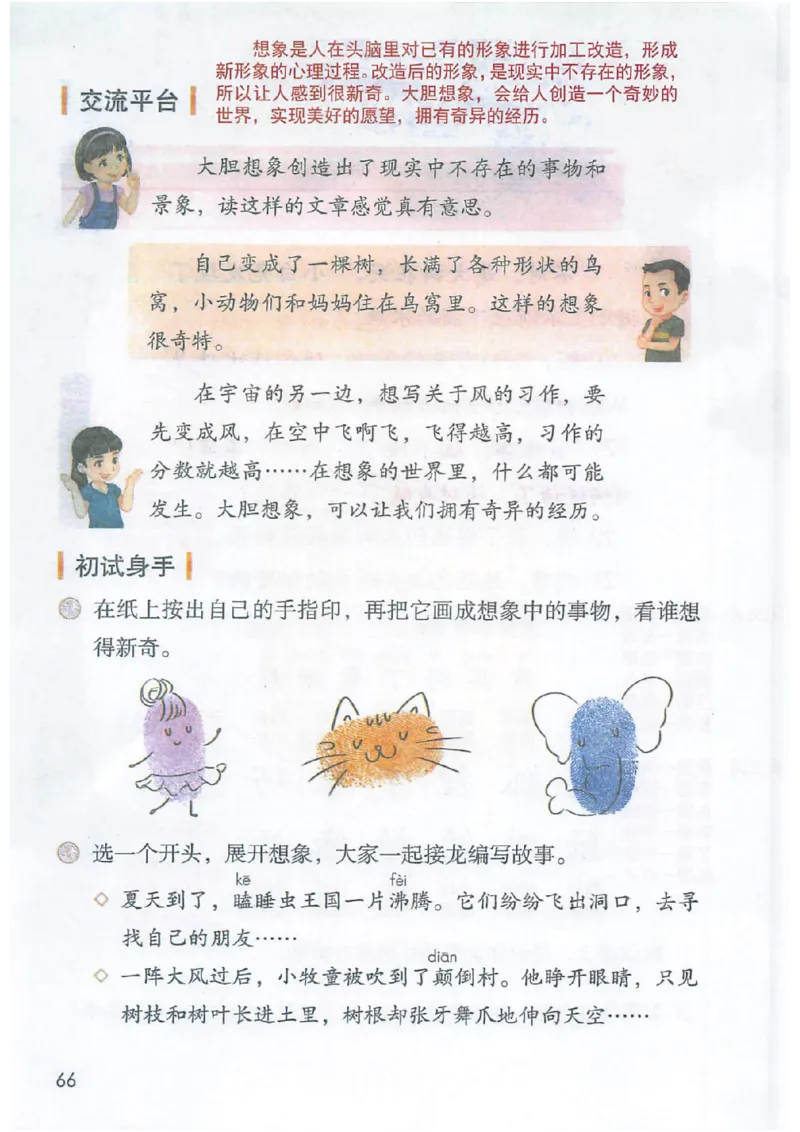 想象是人在头脑里对已有的形象进行加工改造，形成
新形象的心理过程。改造后的形象，是现实中不存在的形象，
所以让人感到很新奇。大胆想象，会给人创造一个奇妙的
世界，实现美好的愿望，拥有奇异的经历。
交流平台
大胆想象创造出了现实中不存在的事物和
景象，读这样的文章感觉真有意思。
自己变成了一棵树，长满了各种形状的鸟
窝，小动物们和妈妈住在鸟窝里。这样的想象
很奇特。
在宇宙的另一边，想写关于风的习作，要
先变成风，在空中飞啊飞，飞得越高，习作的
分数就越高……在想象的世界里，什么都可能
发生。大胆想象，可以让我们拥有奇异的经历。
初试身手
在纸上按出自己的手指印，再把它画成想象中的事物，看谁想
得新奇。
选一个开头，展开想象，大家一起接龙编写故事。
kē fèi
夏天到了，瞌睡虫王国一片沸腾。它们纷纷飞出洞口，去寻
找自己的朋友……
diān
一阵大风过后，小牧童被吹到了颠倒村。他睁开眼睛，只见
树枝和树叶长进土里，树根却张牙舞爪地伸向天空……
66